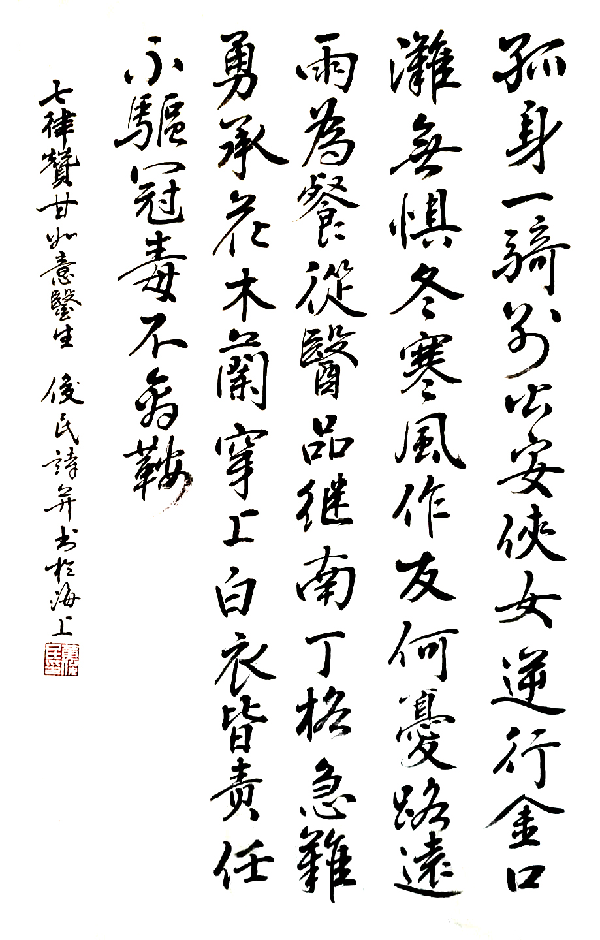 孤身一騎別公安俠女逆行金口
灘無惧冬寒風作友何憂路遠
雨為餐從醫品继南丁格急難
勇承花木蘭穿上白衣皆责任
不驅冠毒不離鞍
七律贊甘如意醫生 俊民詩并书於海上